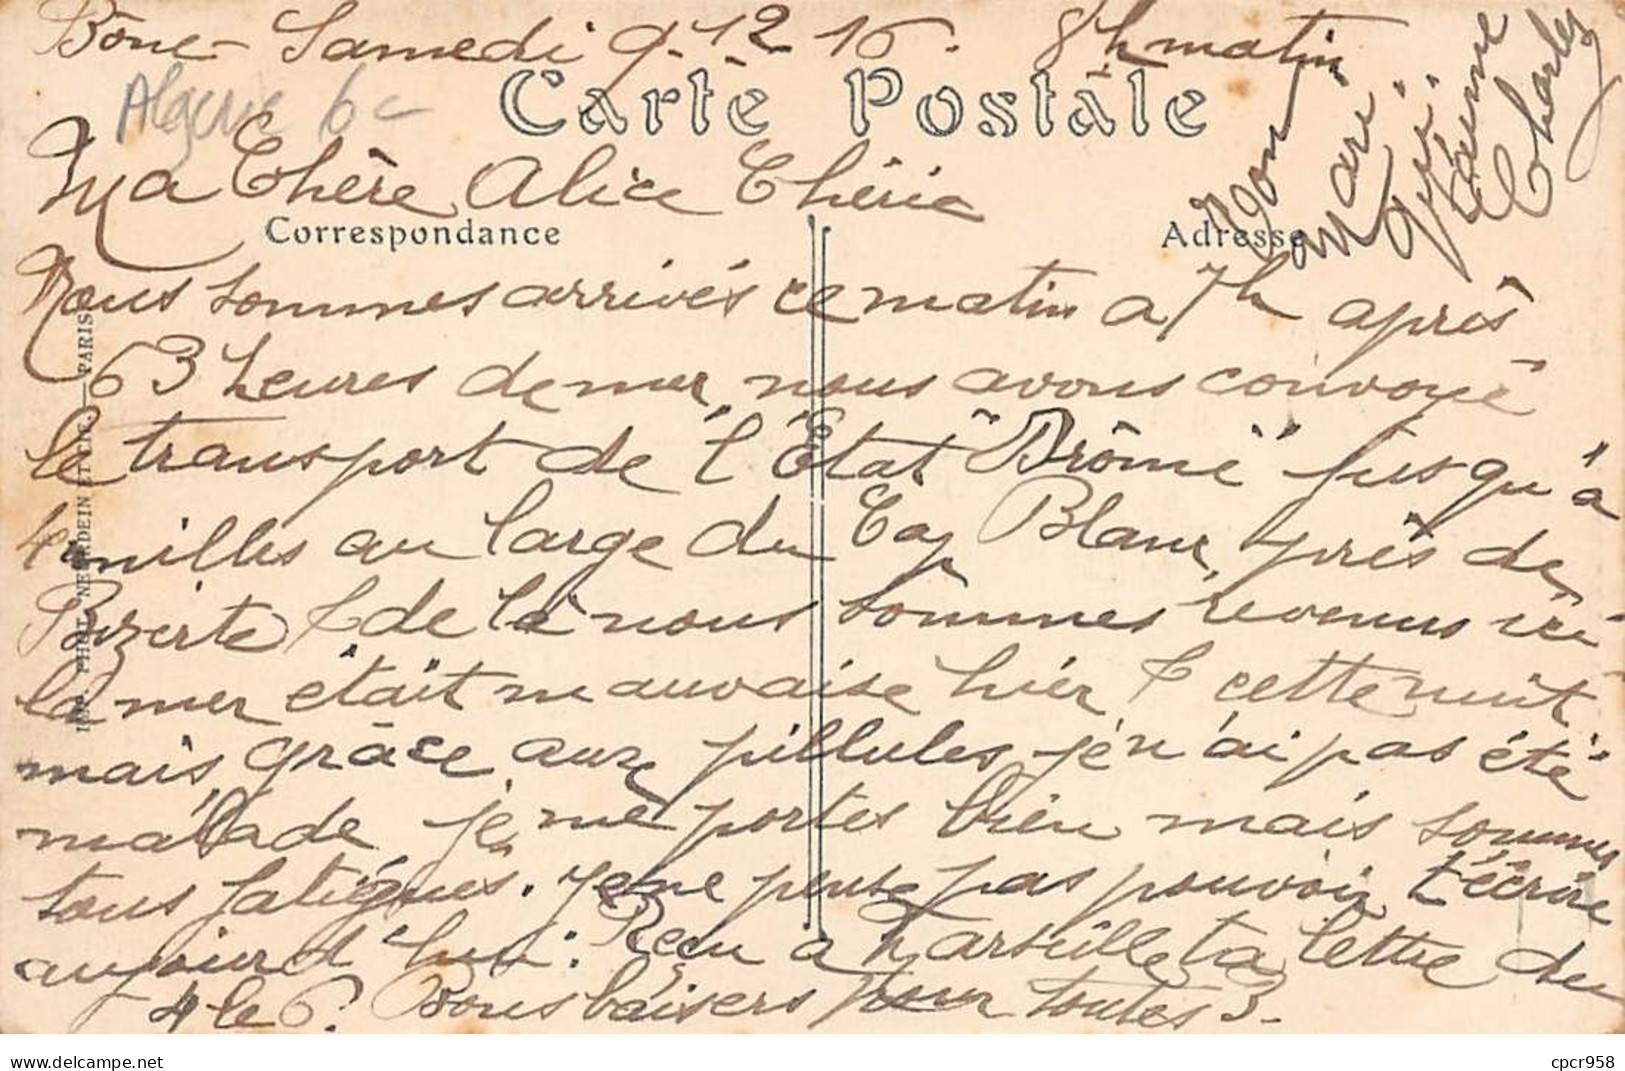 Bône - Samedi 9-12 16. 8h matin
Algerie 6-
Carte Postale
Ma Chère Alice Chérie
Correspondance
Adresse
Nous sommes arrivés ce matin a 7h après
63 heures de mer, nous avons convoyé
le transport de l'État "Drôme" jusqu'à
4 milles au large du Cap Blanc, près de
Bizerte & de là nous sommes revenus ici
la mer était mauvaise hier & cette nuit
mais, grâce aux pillules je n'ai pas été
malade, je me portes bien mais sommes
tous fatigués. Je ne pense pas pouvoir t'écrire
aujourd'hui. Reçu à Marseille ta lettre du
4 le 6. Bons baisers pour toutes 3.
Ton
mari
qui
t'aime
Charles
IMP. PHOT. NEURDEIN ET CIE. - PARIS
cpcr958